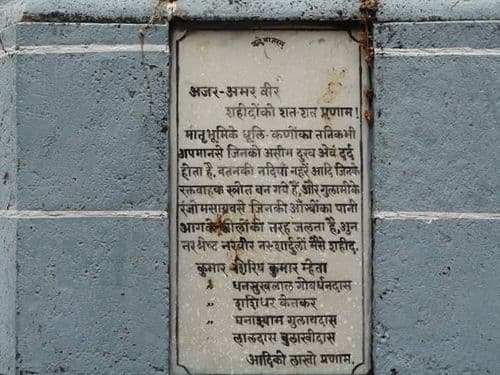 वन्देमातरम्
अजर-अमर वीर
शहीदोंकी शत-शत प्रणाम!
मातृभूमिके धूलि-कणोंका तनिकभी
अपमानसे जिनकी असीम दुख अेवं दर्द
होता है, वतनकी नदियाँ नहरें आदि जिनके
रक्तवाहक स्त्रोत बन गये हैं, और गुलामीके
जिनकी आँखोंका पानी
आगके की तरह जलता है, अुन
नरश्रेष्ट नरवीर नर-शार्दुलों मैसे शहीद.
कुमार शिरिष कुमार म्हेता
" धनसुखलाल गोवर्धनदास
" शशिधर केतकर
" घनाश्याम गुलाबदास
" लालदास बुलाखीदास
आदिकी लाखो प्रणाम.